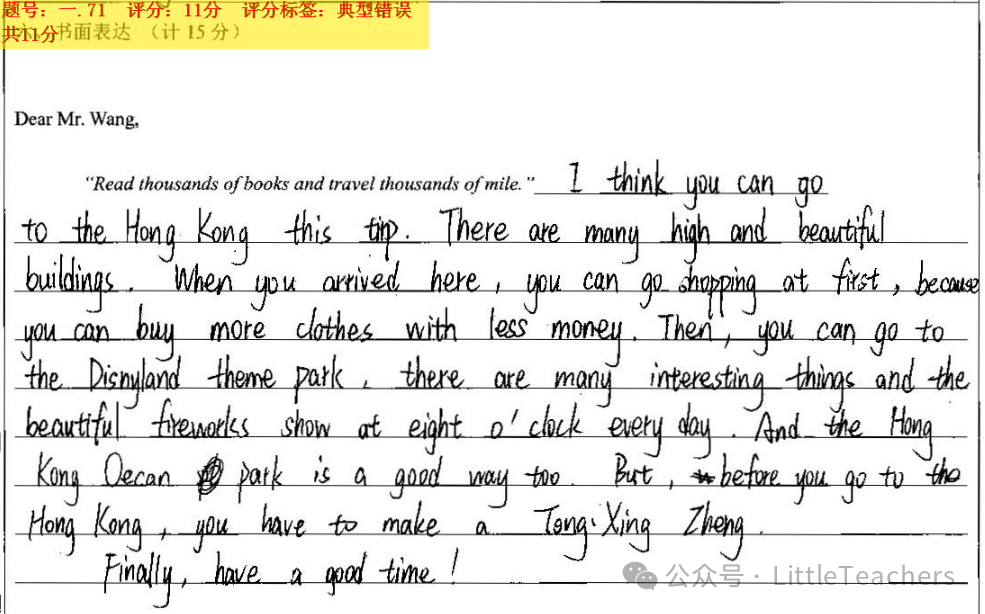 题号：一.71 评分：11分 评分标签：典型错误
共11分
书面表达 （计 15 分）
Dear Mr. Wang,
“Read thousands of books and travel thousands of mile.” I think you can go
to the Hong Kong this trip. There are many high and beautiful
buildings. When you arrived here, you can go shopping at first, because
you can buy more clothes with less money. Then, you can go to
the Disnyland theme park, there are many interesting things and the
beautiful fireworks show at eight o'clock every day. And the Hong
Kong Oecan park is a good way too. But, before you go to the
Hong Kong, you have to make a Tong Xing Zheng.
Finally, have a good time!
公众号 · LittleTeachers